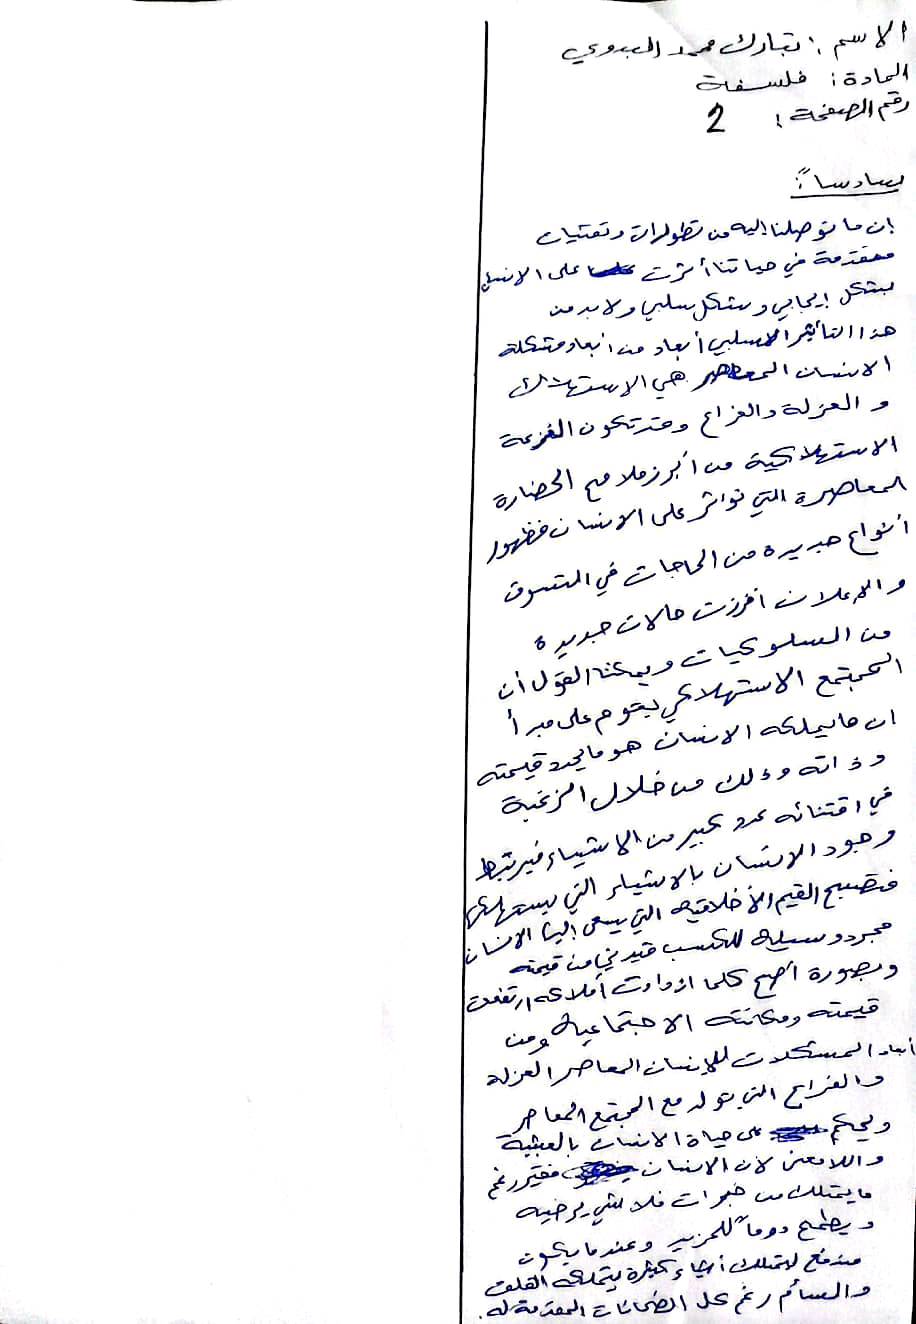 الاسم : تبارك محمد البدوي
المادة : فلسفة
رقم الصفحة : 2
سادساً :
إن ما توصلنا إليه من تطورات وتقنيات
متقدمة في حياتنا أثرت على الانسان
بشكل إيجابي وبشكل سلبي ولابد من
هذا التأثير السلبي أبعاد من أبعاد مشكلة
الانسان المعاصر هي الاستهلاك
و العزلة والفراغ وقد تكون النزعة
الاستهلاكية من أبرز ملامح الحضارة
المعاصرة التي تؤثر على الانسان فظهور
أنواع جديدة من الحاجات في التسوق
والإعلان أفرزت حالات جديدة
من السلوكيات ويمكننا القول أن
المجتمع الاستهلاكي يقوم على مبدأ
ان مايملكه الانسان هو مايحدد قيمته
وذاته وذلك من خلال الرغبة
في اقتنائه عدد كبير من الاشياء فيرتبط
وجود الانسان بالاشياء التي يستهلكها
فتصبح القيم الأخلاقية التي يسعى إليها الانسان
مجرد وسيلة للكسب فيدني من قيمته
وبصورة أصح كلما ازدادت أملاكه ارتفعت
قيمته ومكانته الاجتماعية ومن
أبعاد المشكلات للإنسان المعاصر العزلة
والفراغ التي تولد مع المجتمع المعاصر
ويحكم على حياة الانسان بالعبثية
واللامعنى لأن الانسان فقير رغم
مايمتلك من خبرات فلا شيء يرضيه
ويطمح دوماً للمزيد وعندما يكون
مندفع ليمتلك أشياء كثيرة يتملكه القلق
والسأم رغم كل الضمانات المقدمة له.